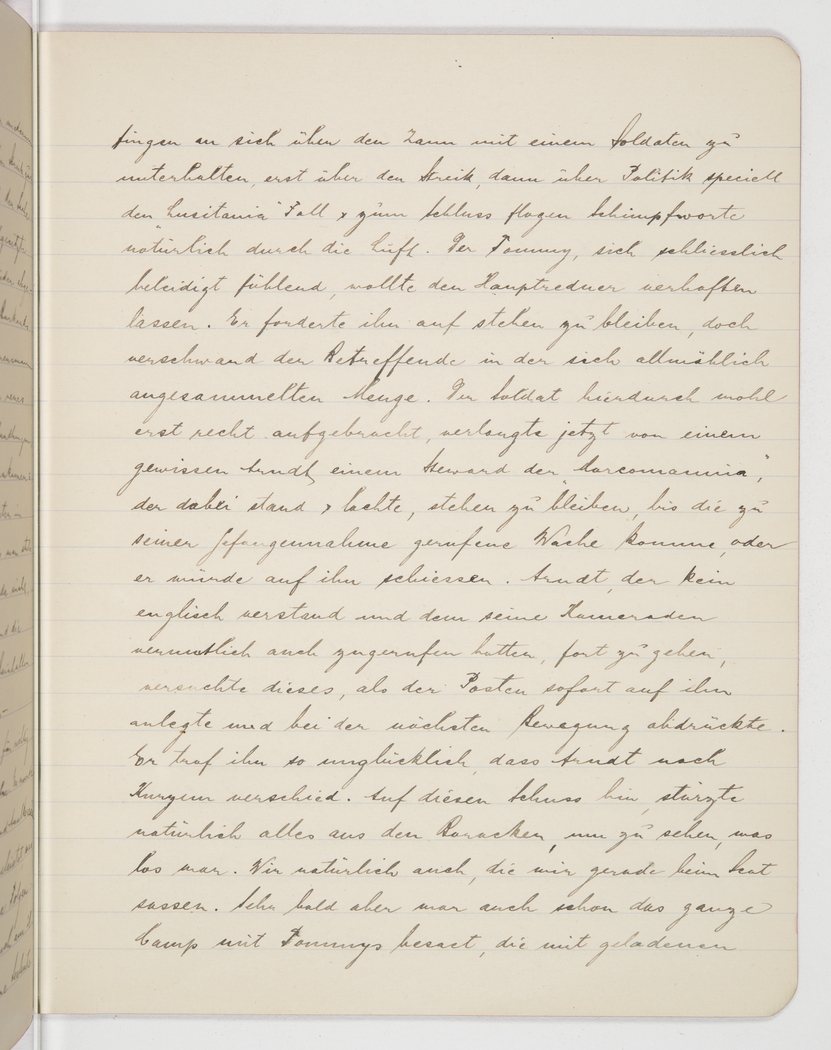 fingen an sich über den Zaun mit einem Soldaten zu
unterhalten, erst über den Streik, dann über Politik speciell
den "Lusitania" Fall & zum Schluss flogen Schimpfworte
natürlich durch die Luft. Der Tommy, sich schliesslich
beleidigt fühlend, wollte den Hauptredner verhaften
lassen. Er forderte ihn auf stehen zu bleiben, doch
verschwand der Betreffende in der sich allmählich
angesammelten Menge. Der Soldat hierdurch wohl
erst recht aufgebracht, verlangte jetzt von einem
gewissen Arndt, einem Steward der "Marcomannia",
der dabei stand & lachte, stehen zu bleiben, bis die zu
seiner Gefangennahme gerufene Wache komme, oder
er würde auf ihn schiessen. Arndt, der kein
englisch verstand und dem seine Kameraden
vermutlich auch zugerufen hatten, fort zu gehen,
versuchte dieses, als der Posten sofort auf ihn
anlegte und bei der nächsten Bewegung abdrückte.
Er traf ihn so unglücklich, dass Arndt nach
Kurzem verschied. Auf diesen Schuss hin, stürzte
natürlich alles aus den Baracken, um zu sehen, was
los war. Wir natürlich auch, die wir gerade beim Scat
sassen. Sehr bald aber war auch schon das ganze
Camp mit Tommys besact, die mit geladenen